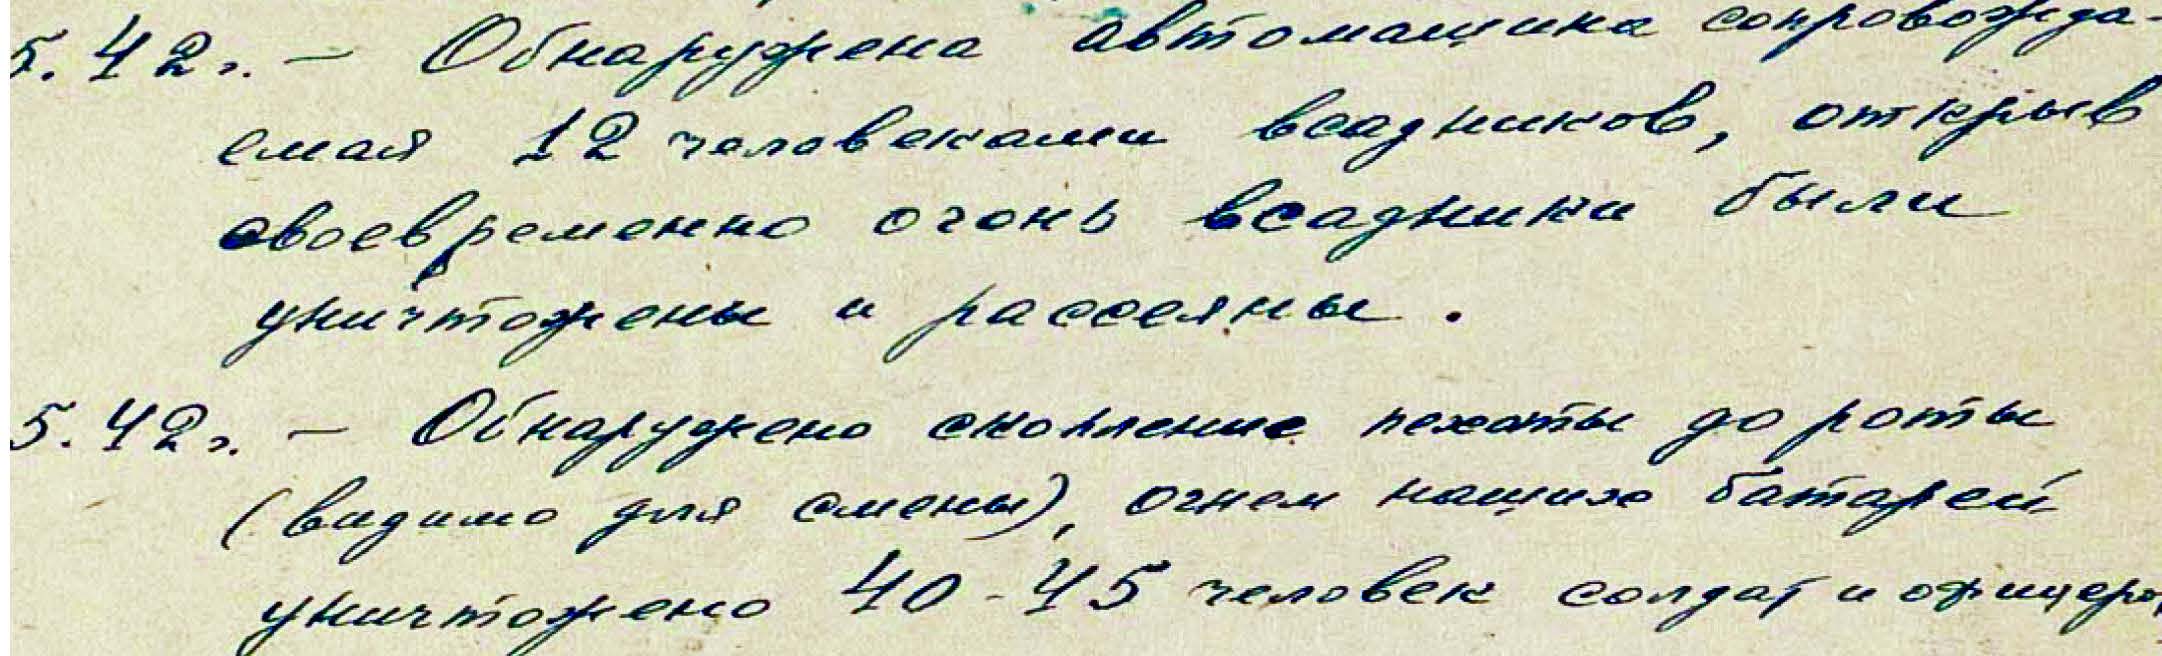 5.42г. – Обнаружена автомашина сопровожда-
емая 12 человеками всадников, открыв
своевременно огонь всадники были
уничтожены и рассеяны.
5.42г. – Обнаружено скопление пехоты до роты
(видимо для смены), огнем наших батарей
уничтожено 40-45 человек солдат и офицеро